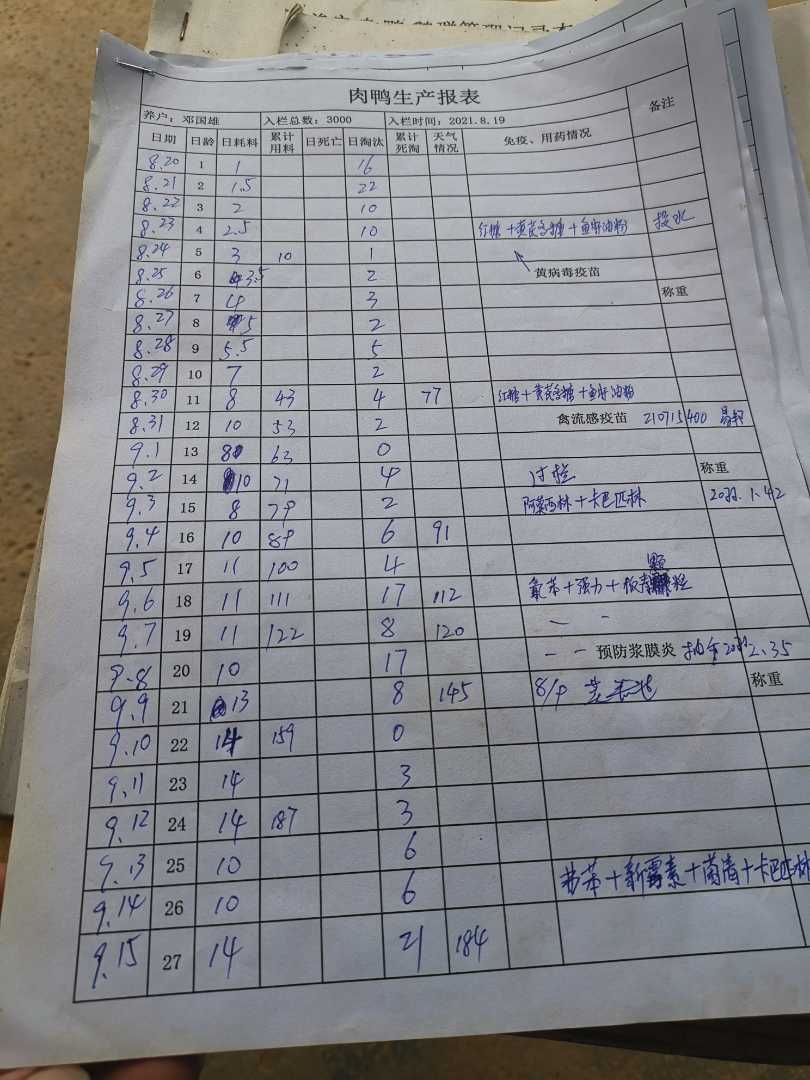 肉鸭生产报表
养户：邓国雄 入栏总数：3000 入栏时间：2021.8.19 备注
日期 日龄 日耗料 累计用料 日死亡 日淘汰 累计死淘 天气情况 免疫、用药情况
8.20 1 1 16
8.21 2 1.5 22
8.22 3 2 10
8.23 4 2.5 10 红糖+黄芪多糖+鱼肝油粉 投水
8.24 5 3 10 1
8.25 6 3.5 2 黄病毒疫苗
8.26 7 4 3 称重
8.27 8 5 2
8.28 9 5.5 5
8.29 10 7 2
8.30 11 8 43 4 77 红糖+黄芪多糖+鱼肝油粉
8.31 12 10 53 2 禽流感疫苗 210715400
9.1 13 8 63 0
9.2 14 10 71 4 过栏 称重
9.3 15 8 79 2 阿莫西林+卡巴匹林
9.4 16 10 89 6 91
9.5 17 11 100 4
9.6 18 11 111 17 112 氟苯+强力+板青颗粒
9.7 19 11 122 8 120 — —
9.8 20 10 17 — — 预防浆膜炎 2.35
9.9 21 13 8 145 8/9 称重
9.10 22 14 159 0
9.11 23 14 3
9.12 24 14 187 3
9.13 25 10 6
9.14 26 10 6 +新霉素+菌清+卡巴匹林
9.15 27 14 21 184